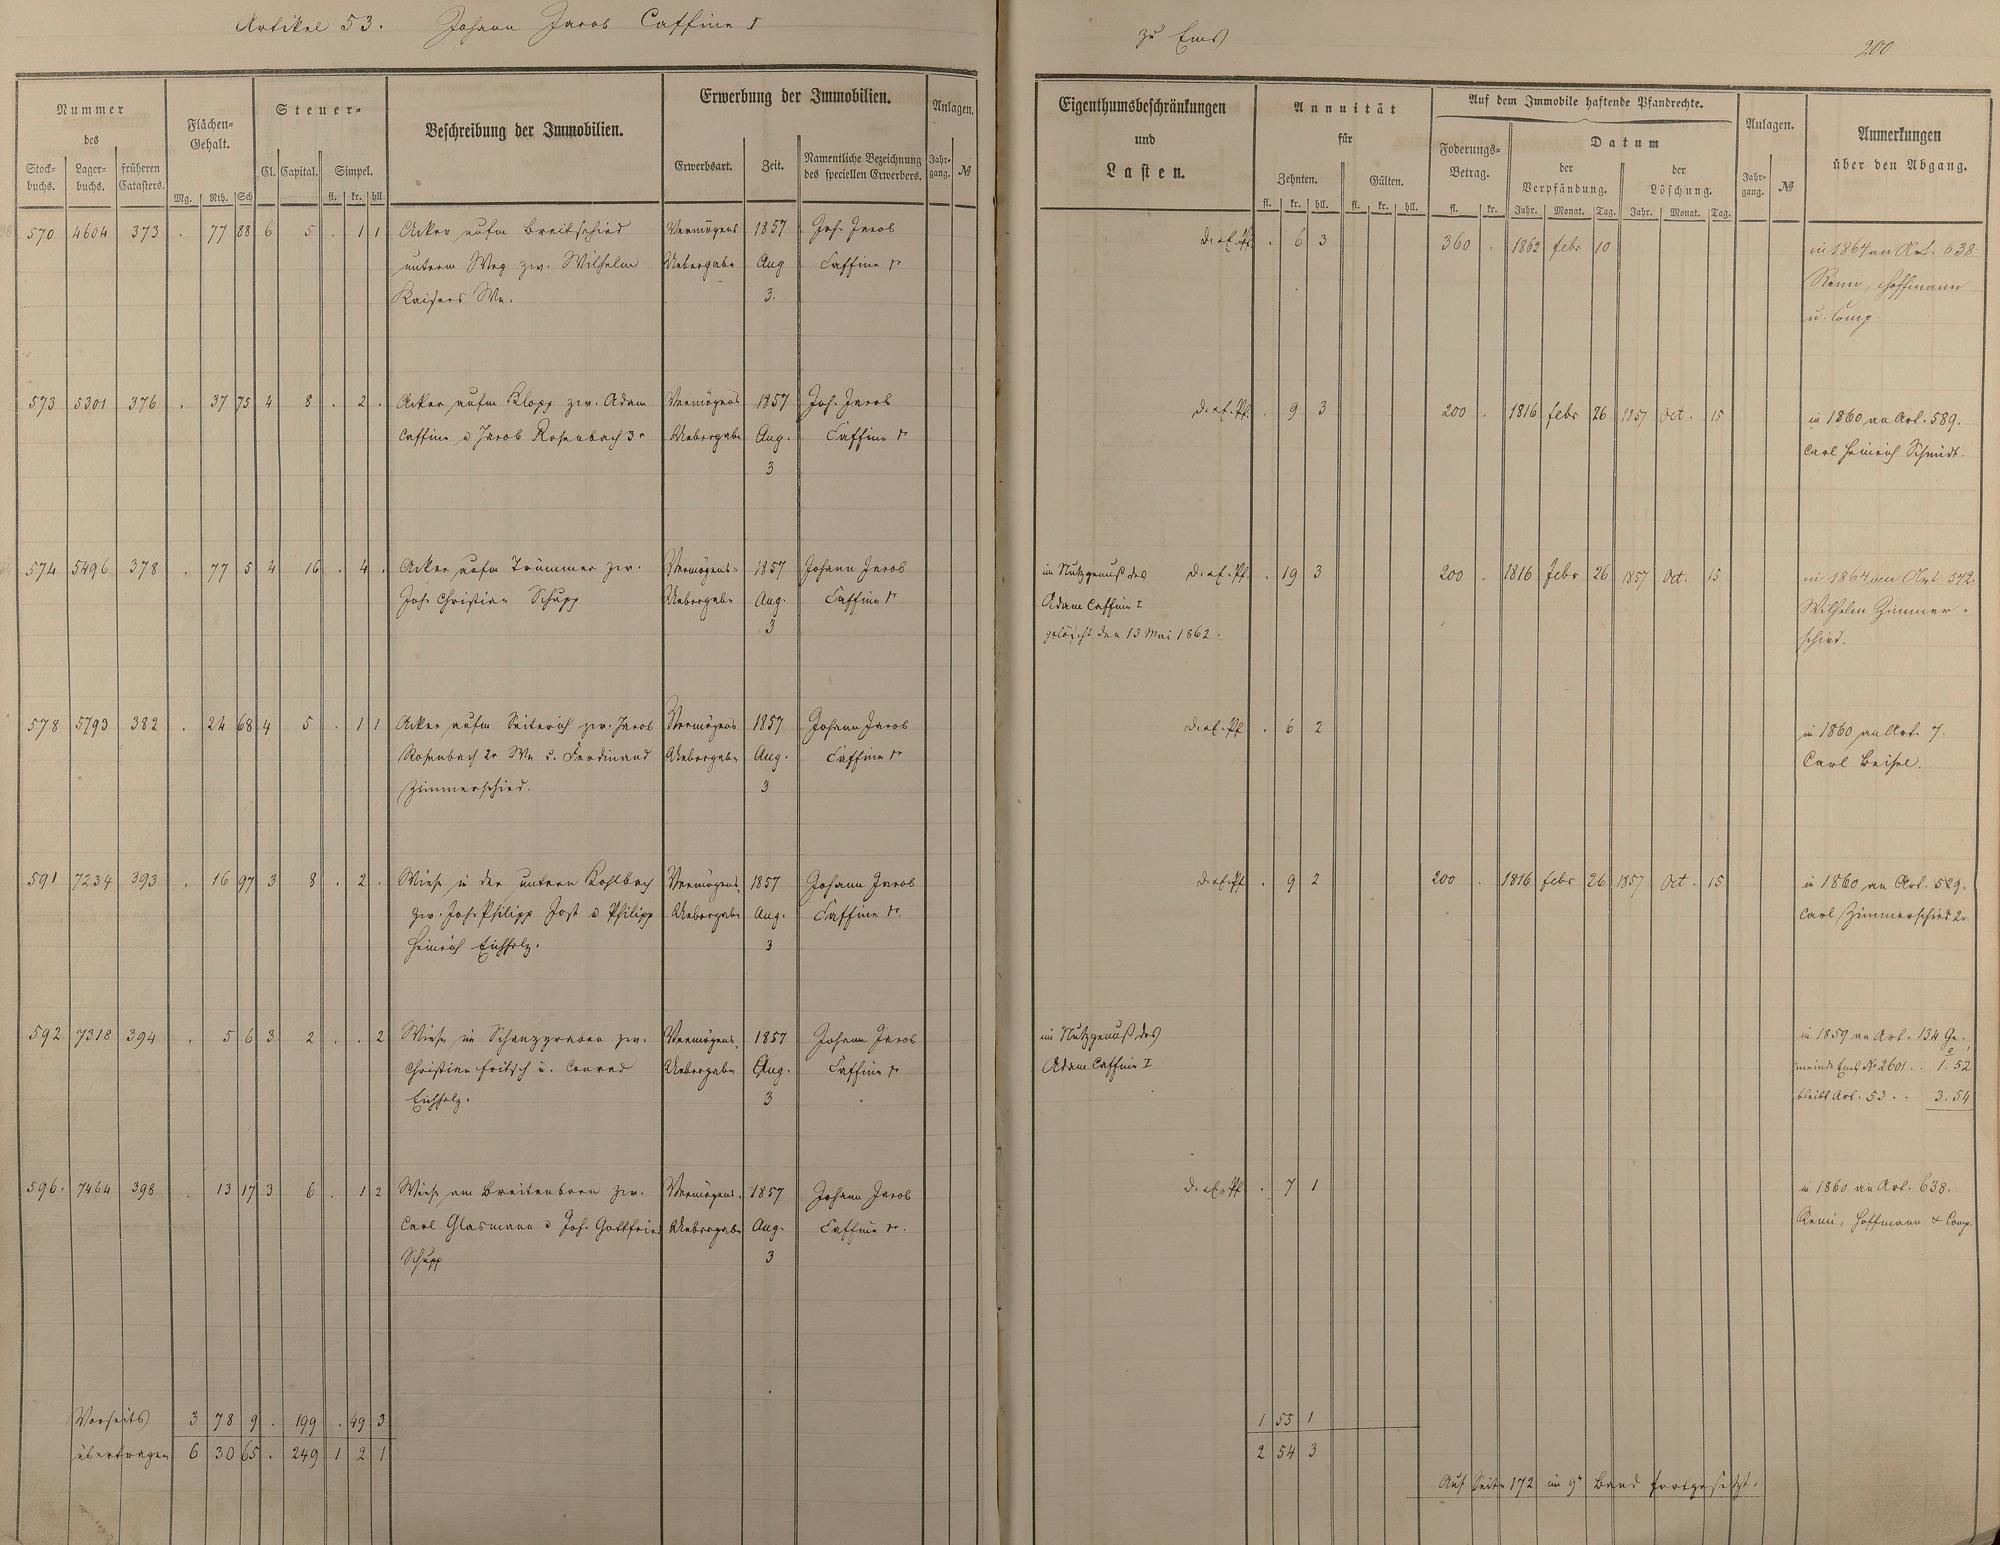 Artikel 53. Johann Jacob Caffine I
zu Ems
200
Nummer
des
Stock-buchs. Lager-buchs. früheren Catasters.
Flächen-Gehalt.
Mg. Rth. Sch
Steuer-
Cl. Capital. Simpel.
fl. kr. hll.
Beschreibung der Immobilien.
Erwerbung der Immobilien.
Erwerbsart. Zeit. Namentliche Bezeichnung des speciellen Erwerbers.
Anlagen.
Jahr-gang. №
Eigenthumsbeschränkungen
und
Lasten.
Annuität
für
Zehnten. Gülten.
fl. kr. hll. fl. kr. hll.
Auf dem Immobile haftende Pfandrechte.
Foderungs-Betrag.
fl. kr.
Datum
der Verpfändung. der Löschung.
Jahr. Monat. Tag. Jahr. Monat. Tag.
Anlagen.
Jahr-gang. №
Anmerkungen
über den Abgang.
570 4604 373 . 77 88 6 5 . 1 1 Acker aufm Breitschied Vermögens 1857 Joh. Jacob
unterm Weg zw. Wilhelm Uebergabe Aug Caffine 1r
Kaisers We. 3.
. 6 3 360 . 1862 febr 10
in 1864 an Art. 638
Remi, Hoffmann
u. Comp.
573 5301 376 . 37 75 4 8 . 2 . Acker aufm Klopp zw. Adam Vermögens 1857 Joh. Jacob
Caffine u Jacob Rosenbach 3r Uebergabe Aug. Caffine 1r
3
. 9 3 200 . 1816 febr 26 1857 Oct. 15
in 1860 an Art. 589.
Carl Heinrich Schmidt.
574 5496 378 . 77 5 4 16 . 4 . Acker aufm Trümmer zw. Vermögens- 1857 Johann Jacob
Joh. Christian Schupp Uebergabe Aug. Caffine 1r
3
im Nutzgenuß des . 19 3 200 . 1816 febr 26 1857 Oct. 15
Adam Caffine I
gelöscht den 13 Mai 1862.
in 1864 an Art. 572.
Wilhelm Zimmer-
schied.
578 5793 382 . 24 68 4 5 . 1 1 Acker aufm Seiterich zw. Jacob Vermögens 1857 Johann Jacob
Rosenbach 2r We u. Ferdinand Uebergabe Aug. Caffine 1r
Zimmerschied. 3
. 6 2
in 1860 an Art. 7.
Carl Beisel.
591 7234 393 . 16 97 3 8 . 2 . Wiese in der untern Kohlbach Vermögens. 1857 Johann Jacob
zw. Joh. Philipp Jost u Philipp Uebergabe Aug. Caffine 1r.
Heinrich Eichholz. 3
. 9 2 200 . 1816 febr 26 1857 Oct. 15
in 1860 an Art. 529.
Carl Zimmerschied 2r
592 7318 394 . 5 6 3 2 . . 2 Wiese im Schanzgraben zw. Vermögens. 1857 Johann Jacob
Christian Fritsch u. Conrad Uebergabe Aug. Caffine 1r
Eichholz. 3
im Nutzgenuß des
Adam Caffine I
in 1859 an Art. 134 Ge-
meinde Ems № 2601 . . 1. 52
bleibt Art. 53 . . 3. 54
596. 7464 398 . 13 17 3 6 . 1 2 Wiese am Breitenborn zw. Vermögens. 1857 Johann Jacob
Carl Glasmann u Joh. Gottfried Uebergabe Aug. Caffine 1r.
Schupp 3
. 7 1
in 1860 an Art. 638.
Remi, Hoffmann & Comp.
Vorseits 3 78 9 . 199 . 49 3
1 55 1
übertragen 6 30 65 . 249 1 2 1
2 54 3
Auf Seite 172 im 9n Band fortgesetzt.